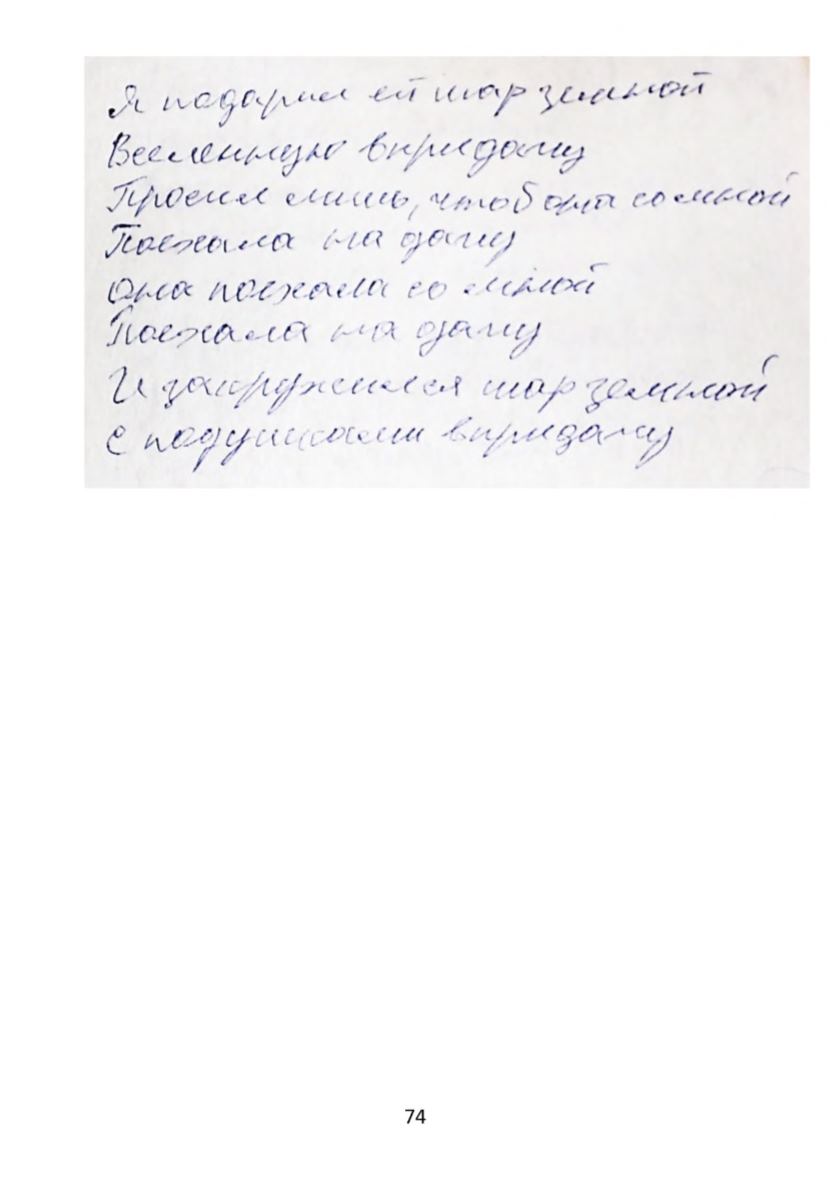 Я подарил ей шар земной
Вселенную впридачу
Просил лишь, чтоб она со мной
Поехала на дачу
Она поехала со мной
Поехала на дачу
И закружился шар земной
с подушками впридачу
74